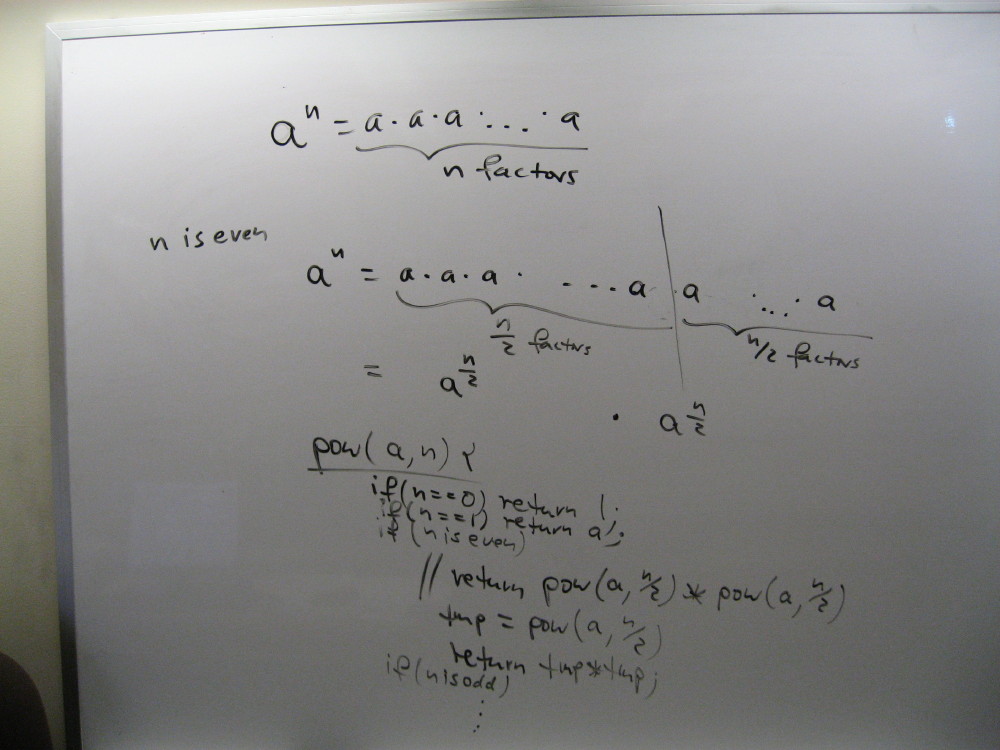 aⁿ = a · a · a · ... · a
n factors
n is even
aⁿ = a · a · a · ... a · a ... · a
n/2 factors n/2 factors
= a^(n/2) · a^(n/2)
pow(a, n) {
if(n==0) return 1;
if(n==1) return a;
if(n is even)
// return pow(a, n/2) * pow(a, n/2)
tmp = pow(a, n/2)
return tmp*tmp;
if(n is odd)
⋮